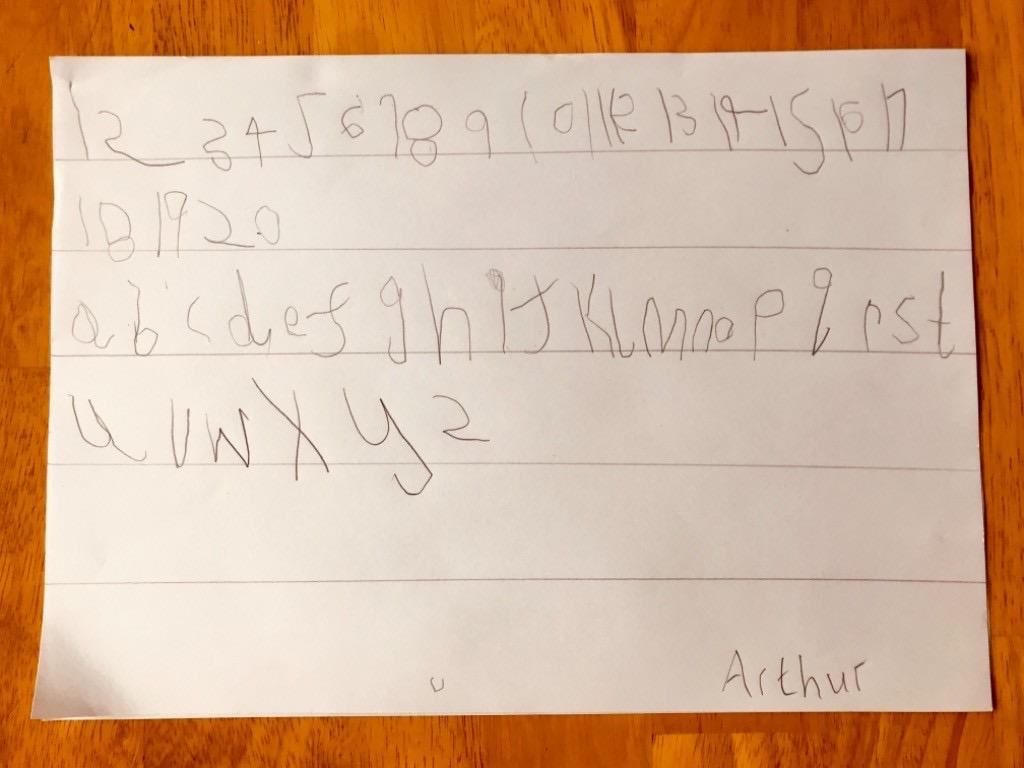 1 2 3 4 5 6 7 8 9 10 11 12 13 14 15 16 17
18 19 20
a b c d e f g h i j k l m n o p q r s t
u v w x y z
Arthur